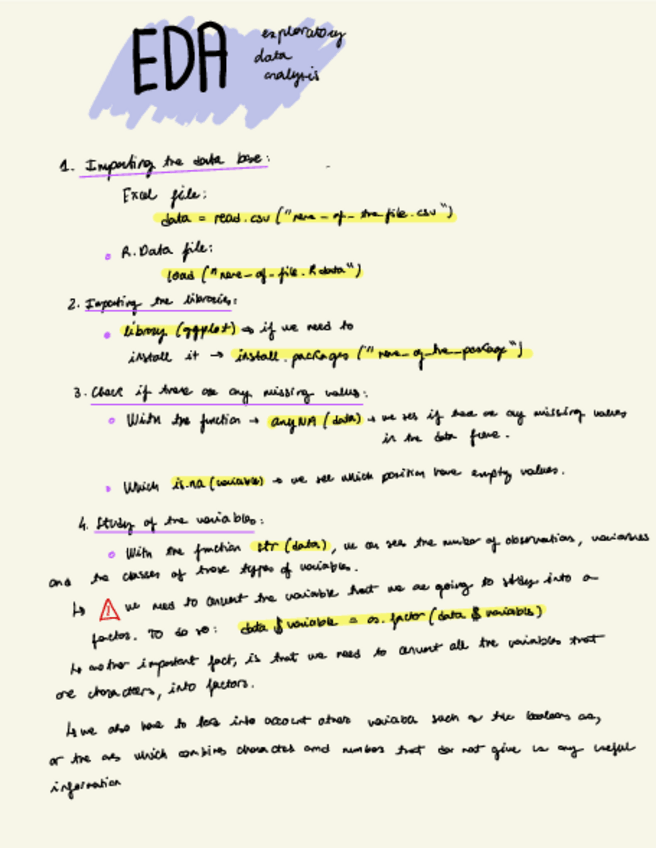 EDA
exploratory
data
analysis
1. Importing the data base:
Excel file:
data = read.csv ("name_of_the_file.csv")
R.Data file:
load ("name_of_file.Rdata")
2. Importing the libraries:
library (ggplot) → if we need to
install it → install.packages ("name_of_the_package")
3. Check if there are any missing values:
With the function → anyNA (data) → we see if there are any missing values
in the data frame.
Which is.na (variable) → we see which position have empty values.
4. Study of the variables:
With the function str (data), we can see the number of observations, variables
and the classes of those types of variables.
↳ ⚠ we need to convert the variable that we are going to study into a
factor. To do so: data $ variable = as.factor (data $ variables)
↳ another important fact, is that we need to convert all the variables that
are characters, into factors.
↳ we also have to take into account other variables such as the booleans
or the ones which combines characters and numbers that do not give us any useful
information